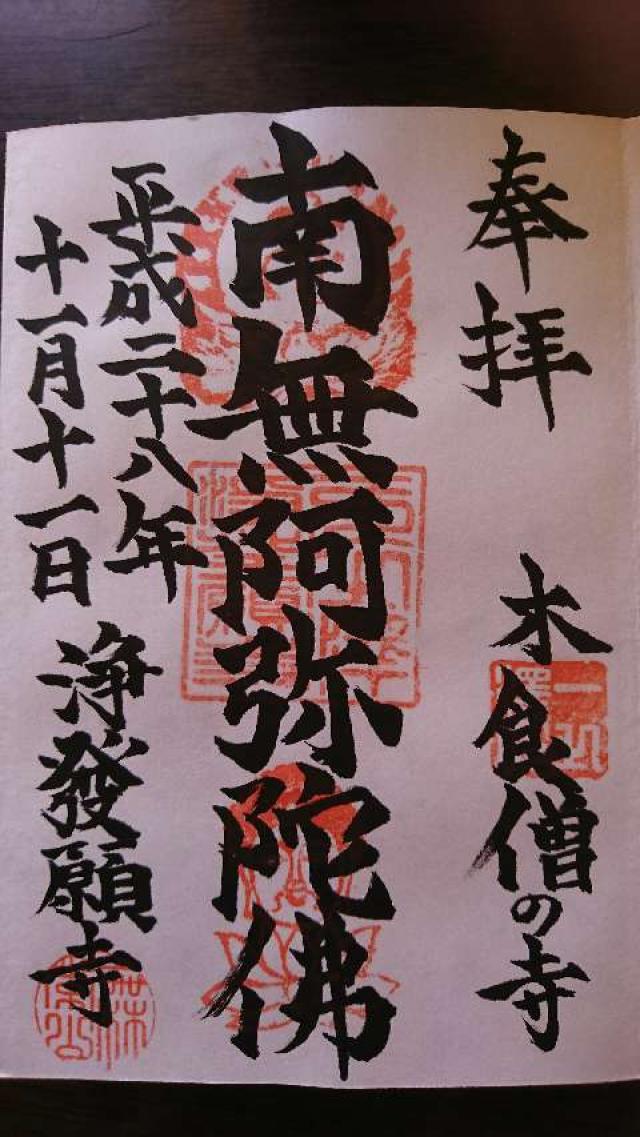 奉拝
木食僧の寺
南無阿弥陀佛
平成二十八年
十一月十一日
浄發願寺